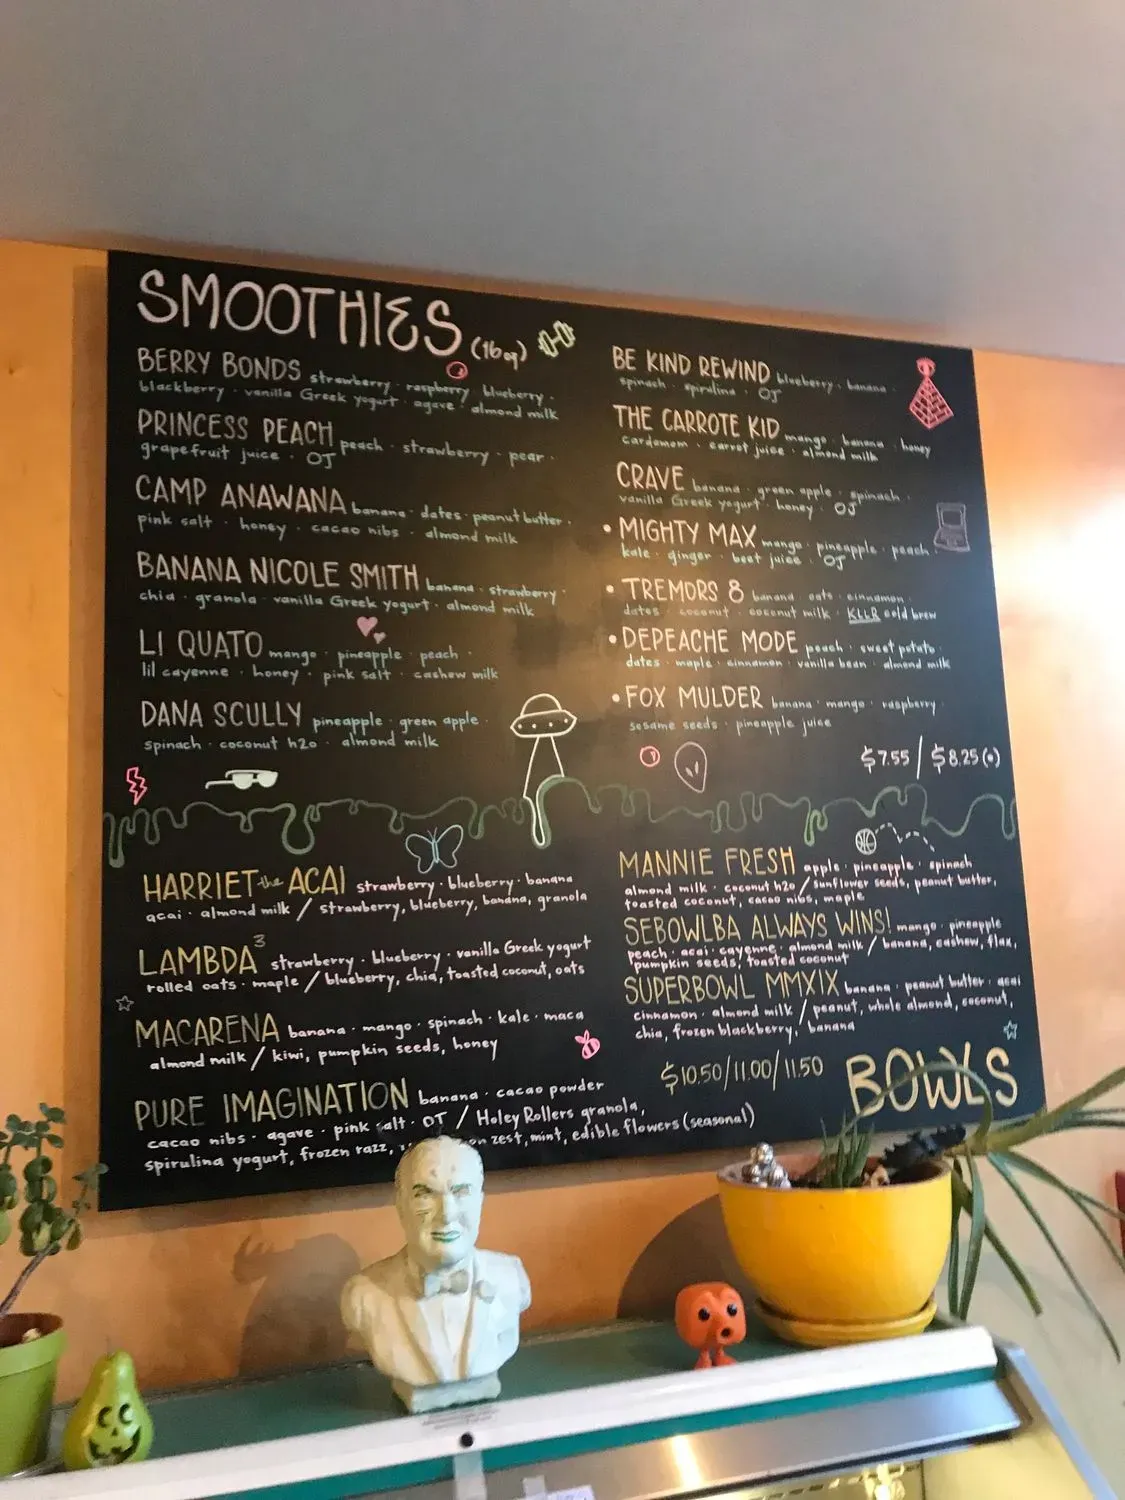 SMOOTHIES (16oz)
BERRY BONDS strawberry · raspberry · blueberry ·
blackberry · vanilla Greek yogurt · agave · almond milk
PRINCESS PEACH peach · strawberry · pear ·
grapefruit juice · OJ
CAMP ANAWANA banana · dates · peanut butter ·
pink salt · honey · cacao nibs · almond milk
BANANA NICOLE SMITH banana · strawberry ·
chia · granola · vanilla Greek yogurt · almond milk
LI QUATO mango · pineapple · peach ·
lil cayenne · honey · pink salt · cashew milk
DANA SCULLY pineapple · green apple ·
spinach · coconut h2o · almond milk
BE KIND REWIND blueberry · banana ·
spinach · spirulina · OJ
THE CARROTE KID mango · banana · honey
cardamom · carrot juice · almond milk
CRAVE banana · green apple · spinach ·
vanilla Greek yogurt · honey · OJ
• MIGHTY MAX mango · pineapple · peach ·
kale · ginger · beet juice · OJ
• TREMORS 8 banana · oats · cinnamon ·
dates · coconut · coconut milk · KLLR cold brew
• DEPEACHE MODE peach · sweet potato ·
dates · maple · cinnamon · vanilla bean · almond milk
• FOX MULDER banana · mango · raspberry
sesame seeds · pineapple juice
$7.55 / $8.25 (•)
HARRIET the ACAI strawberry · blueberry · banana
acai · almond milk / strawberry, blueberry, banana, granola
LAMBDA³ strawberry · blueberry · vanilla Greek yogurt
rolled oats · maple / blueberry, chia, toasted coconut, oats
MACARENA banana · mango · spinach · kale · maca
almond milk / kiwi, pumpkin seeds, honey
PURE IMAGINATION banana · cacao powder
cacao nibs · agave · pink salt · OJ / Holey Rollers granola,
spirulina yogurt, frozen razz, zest, mint, edible flowers (seasonal)
MANNIE FRESH apple · pineapple · spinach
almond milk · coconut h2o / sunflower seeds, peanut butter,
toasted coconut, cacao nibs, maple
SEBOWLBA ALWAYS WINS! mango · pineapple
peach · acai · cayenne · almond milk / banana, cashew, flax,
pumpkin seeds, toasted coconut
SUPERBOWL MMXIX banana · peanut butter · acai
cinnamon · almond milk / peanut, whole almond, coconut,
chia, frozen blackberry, banana
$10.50/11.00/11.50
BOWLS